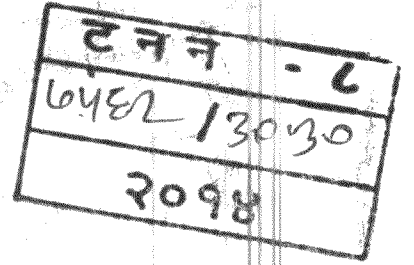 ट न न - ८
७५६२ / ३० ३०
२०१४